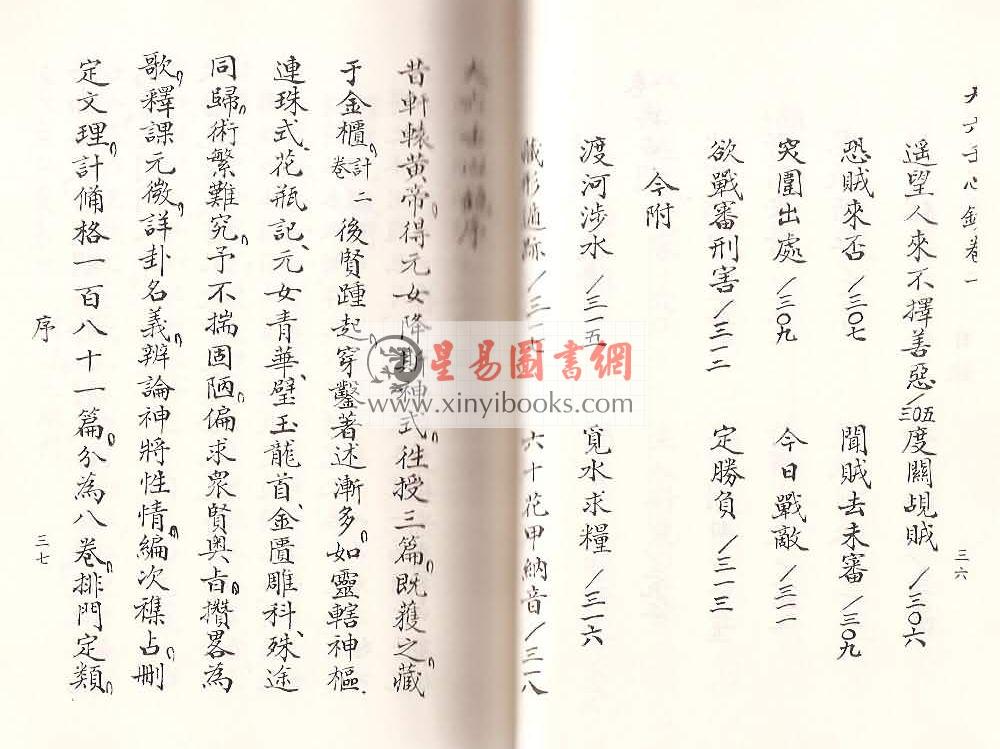 大六壬心鏡卷一
三六
遥望人來不擇善惡/三〇五 度關覘賊 /三〇六
恐賊來否 /三〇七 聞賊去未審 /三〇九
突圍出處 /三〇九 今日戰敵 /三一一
欲戰審刑害 /三一二 定勝負 /三一三
今附
渡河涉水 /三一五 覓水求糧 /三一六
藏形遁跡 /三一七 六十花甲納音 /三一八
序
昔軒轅黄帝、得元女降斯神式、徃授三篇、既獲之、藏
于金櫃、計二卷 後賢踵起、穿鑿著述漸多、如靈轄神樞、
連珠式、花瓶記、元女青華、璧玉龍首、金匱雕科、殊途
同歸、術繁難究、予不揣固陋、偏求衆賢奥旨、攢畧為
歌、釋課元微、詳卦名義、辨論神將性情、編次襍占、刪
定文理、計備格一百八十一篇、分為八卷、排門定類、
序
三七
星易圖書網
www.xinyibooks.com